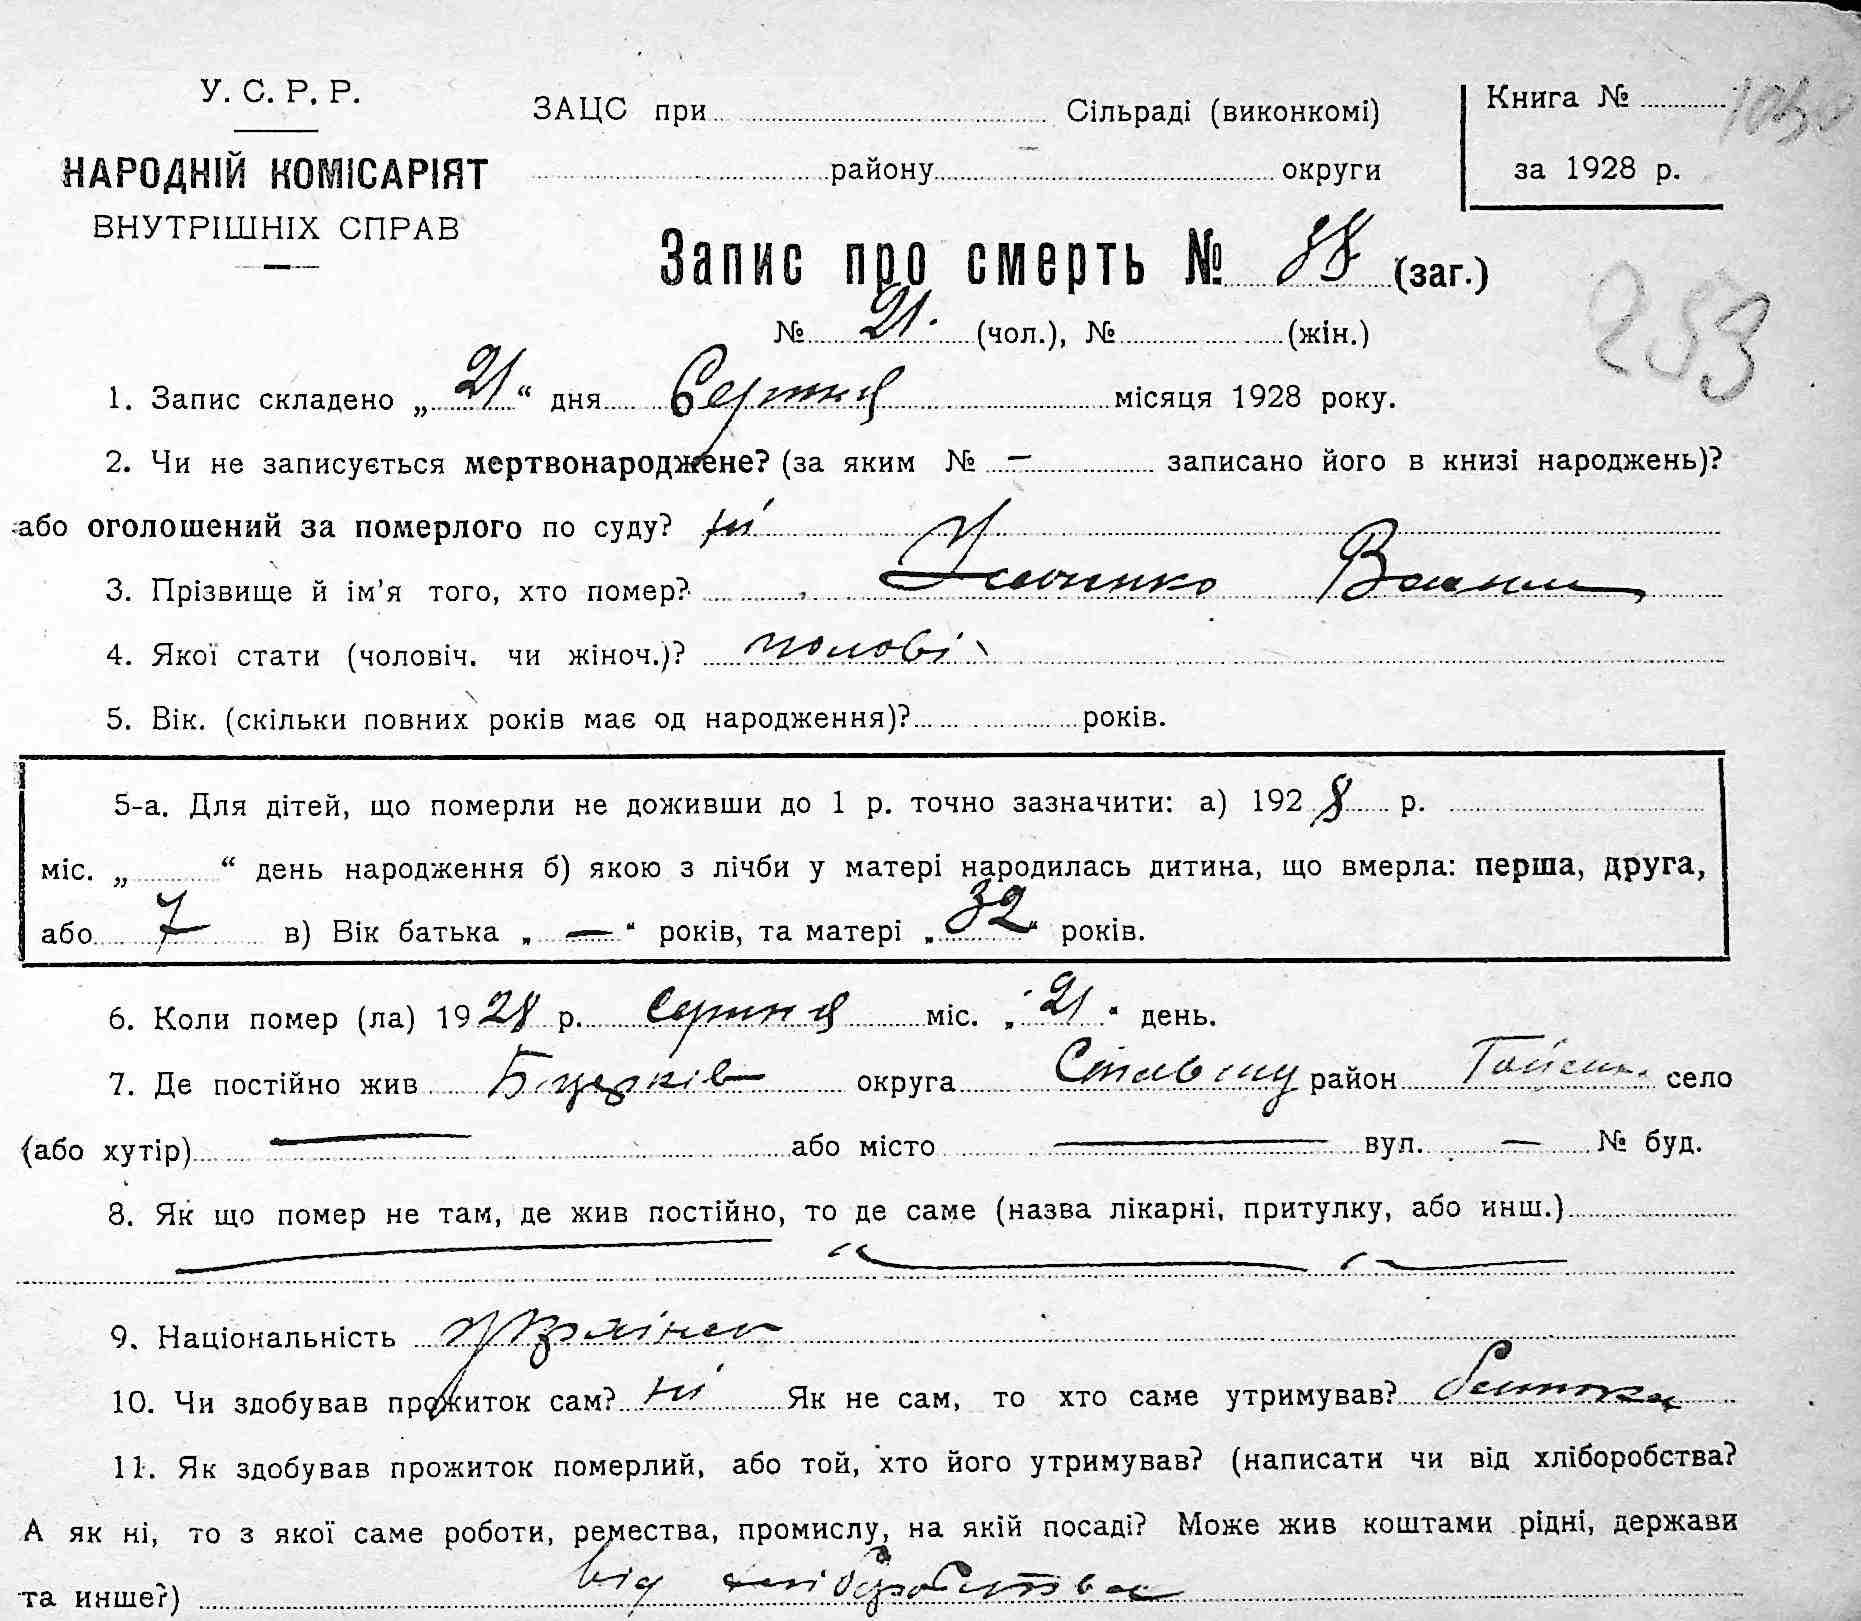 У. С. Р. Р.
НАРОДНІЙ КОМІСАРІЯТ
ВНУТРІШНІХ СПРАВ
ЗАЦС при Сільраді (виконкомі)
району округи
Книга №
за 1928 р.
253
Запис про смерть № 38 (заг.)
№ 21. (чол.), № (жін.)
1. Запис складено „21“ дня Серпня місяця 1928 року.
2. Чи не записується мертвонароджене? (за яким № – записано його в книзі народжень)?
або оголошений за померлого по суду? ні
3. Прізвище й ім'я того, хто помер?
4. Якої стати (чоловіч. чи жіноч.)? чолові
5. Вік. (скільки повних років має од народження)? років.
5-а. Для дітей, що померли не доживши до 1 р. точно зазначити: а) 1928 р.
міс. „ “ день народження б) якою з лічби у матері народилась дитина, що вмерла: перша, друга,
або 7 в) Вік батька „ — “ років, та матері „32“ років.
6. Коли помер (ла) 1928 р. серпня міс. „21“ день.
7. Де постійно жив Б-церків округа Ставищ район село
(або хутір) — або місто — вул. — № буд.
8. Як що помер не там, де жив постійно, то де саме (назва лікарні, притулку, або инш.)
9. Національність українец
10. Чи здобував прожиток сам? ні Як не сам, то хто саме утримував? батько
11. Як здобував прожиток померлий, або той, хто його утримував? (написати чи від хліборобства?
А як ні, то з якої саме роботи, ремества, промислу, на якій посаді? Може жив коштами рідні, держави
та инше?) від хліборобства